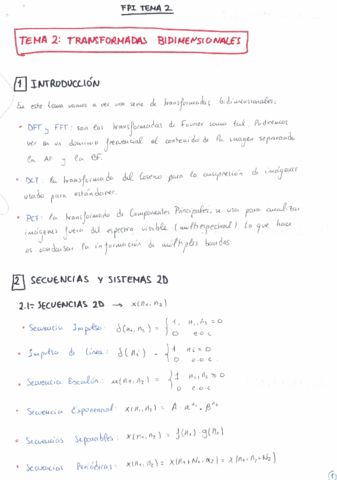 FPI TEMA 2
TEMA 2: TRANSFORMADAS BIDIMENSIONALES
1 INTRODUCCIÓN
En este tema vamos a ver una serie de transformadas bidimensionales:
• DFT y FFT: son las transformadas de Fourier como tal. Podremos
ver en un dominio frecuencial el contenido de la imagen separando
la AF y la BF.
• DCT: la transformada del Coseno para la compresión de imágenes
usado para estándares.
• PCT: la transformada de Componentes Principales, se usa para analizar
imágenes fuera del espectro visible (multiespectral). Lo que hace
es condensar la información de múltiples bandas.
2 SECUENCIAS Y SISTEMAS 2D
2.1= SECUENCIAS 2D → x(n₁,n₂)
• Secuencia Impulso: δ(n₁,n₂) = { 1, n₁,n₂=0
0 e.o.c.
• Impulso de línea: δ(ni) = { 1 ni=0
0 e.o.c.
• Secuencia Escalón: u(n₁,n₂) = { 1 n₁,n₂≥0
0 e.o.c.
• Secuencia Exponencial: x(n₁,n₂) = A·α^n₁·β^n₂
• Secuencias Separables: x(n₁,n₂) = f(n₁)·g(n₂)
• Secuencias Periódicas: x(n₁,n₂) = x(n₁+N₁,n₂) = x(n₁,n₂+N₂)
1